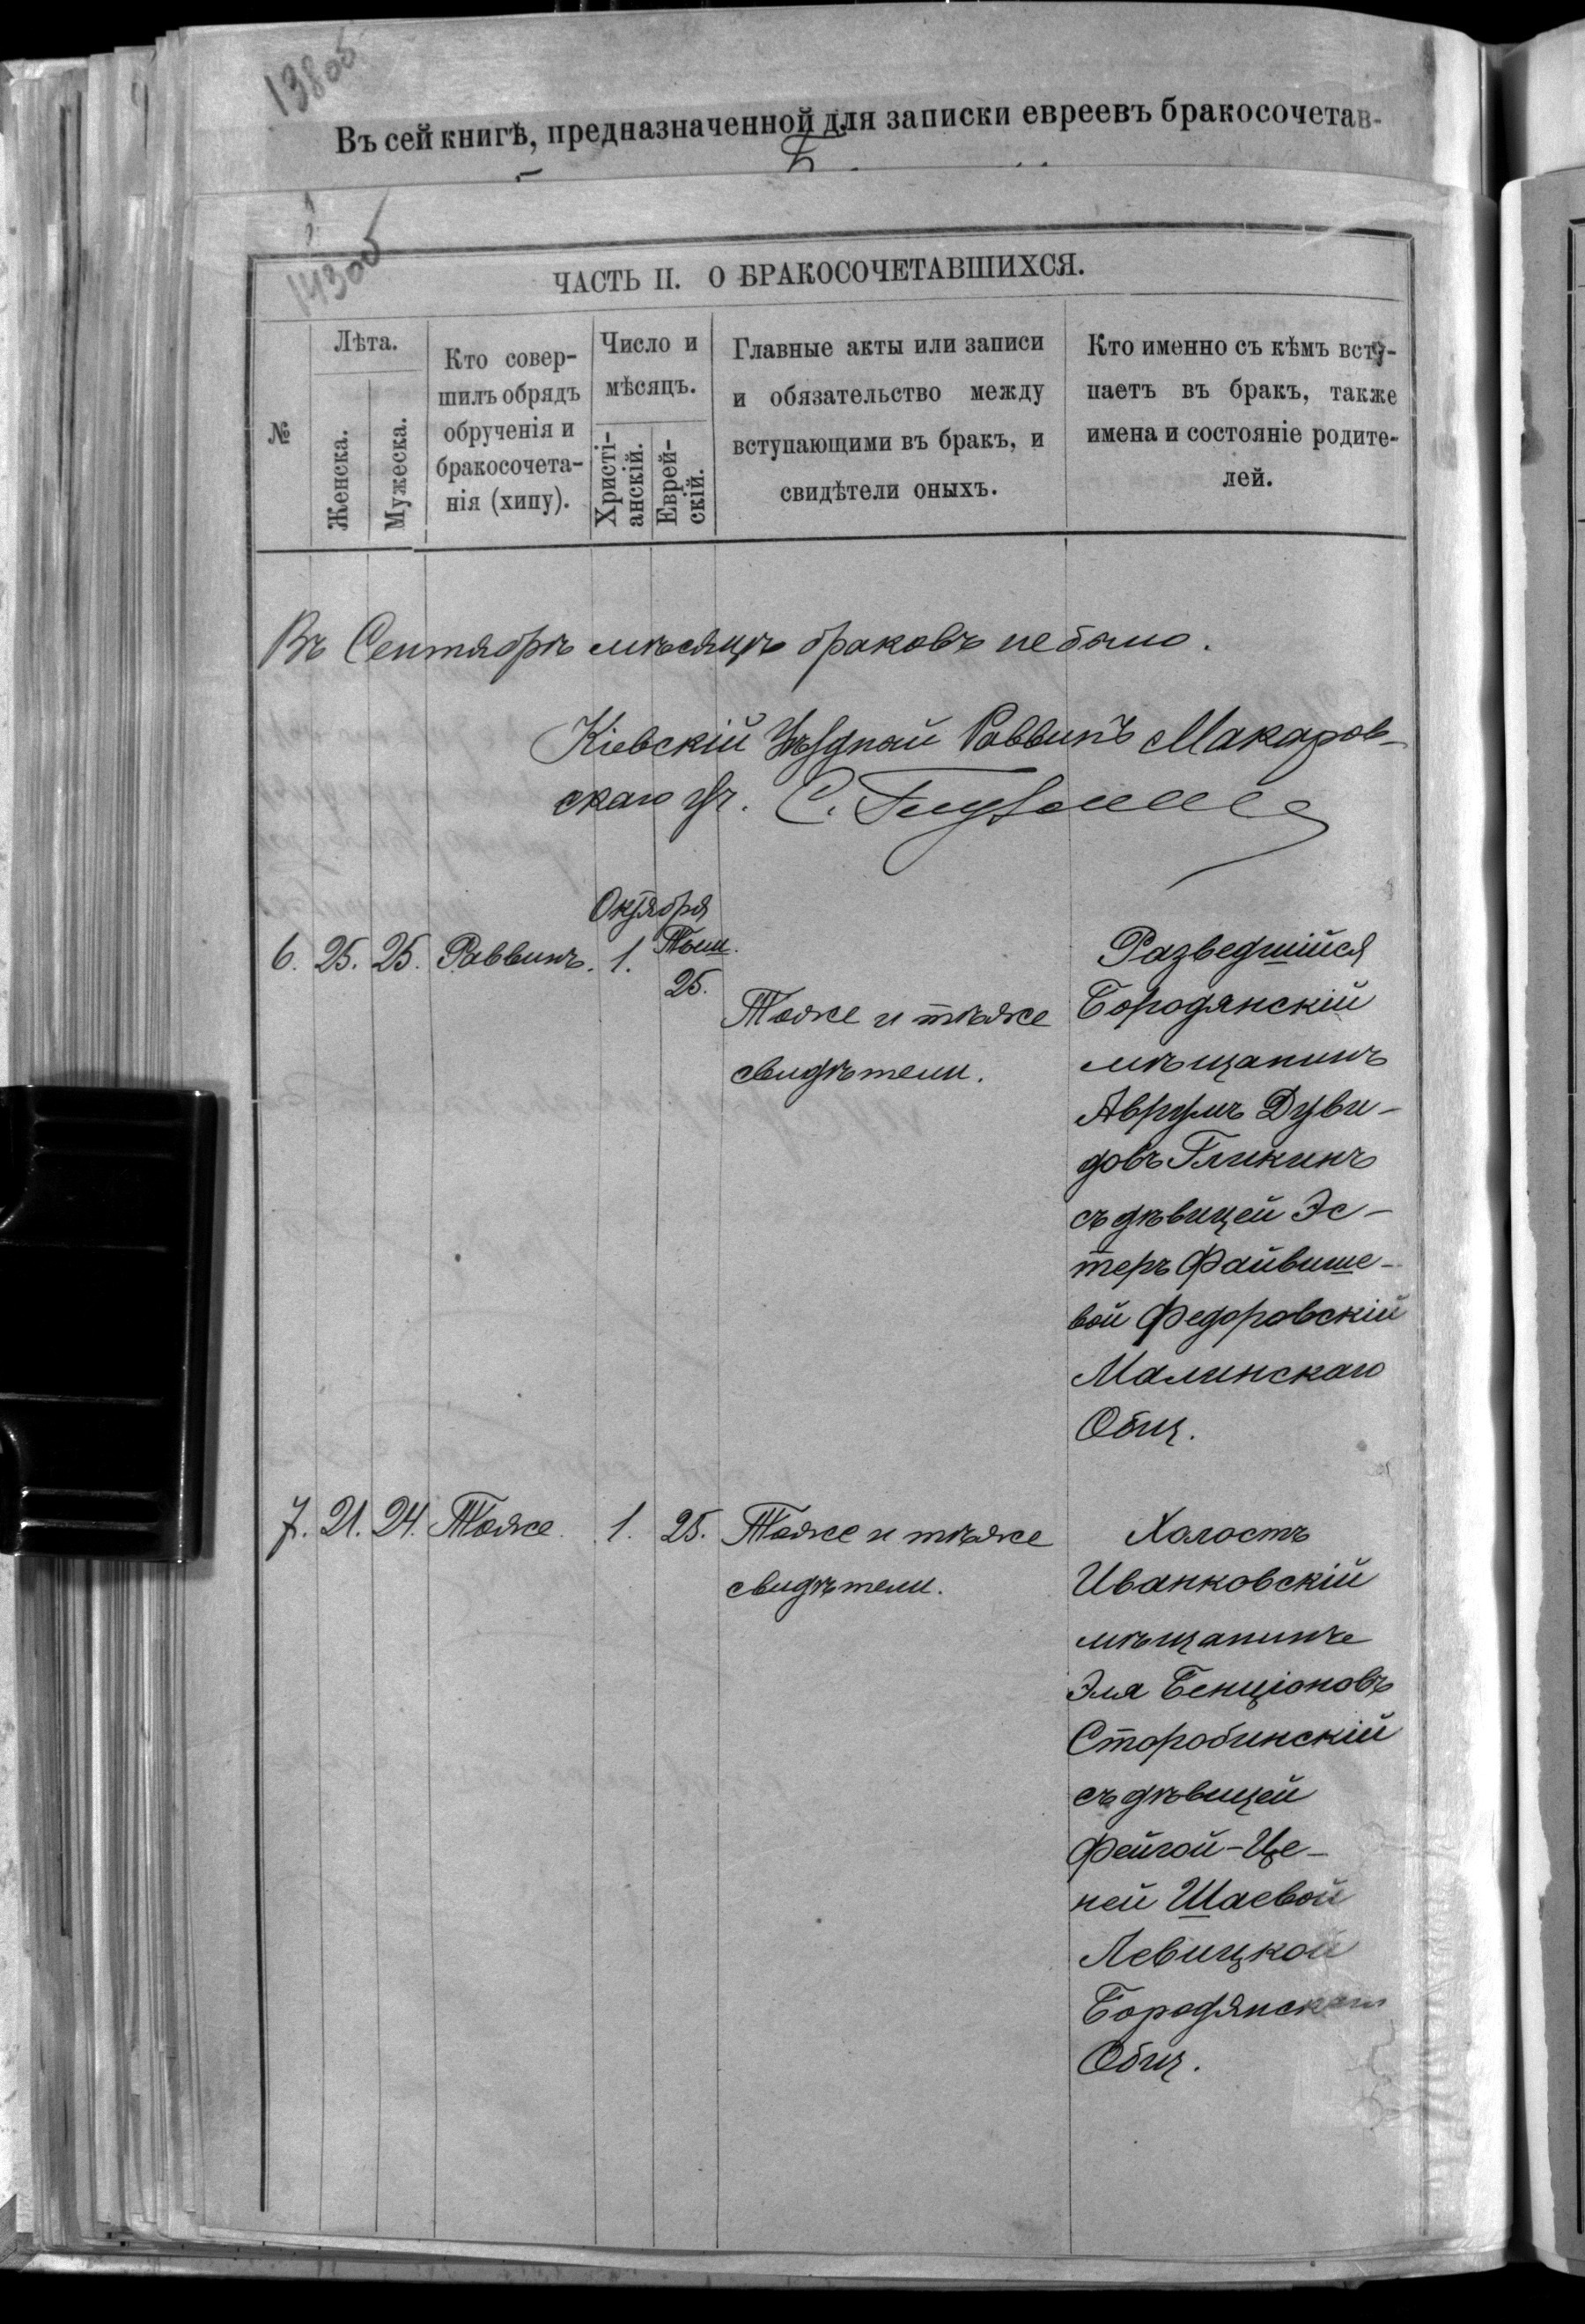 138об
Въ сей книгѣ, предназначенной для записки евреевъ бракосочетав-
143об
ЧАСТЬ II. О БРАКОСОЧЕТАВШИХСЯ.
№
Лѣта.
Женска.
Мужеска.
Кто совер-
шилъ обрядъ
обрученія и
бракосочета-
нія (хипу).
Число и
мѣсяцъ.
Христі-
анскій.
Еврей-
скій.
Главные акты или записи
и обязательство между
вступающими въ бракъ, и
свидѣтели оныхъ.
Кто именно съ кѣмъ всту-
паетъ въ бракъ, также
имена и состояніе родите-
лей.
Въ Сентябрѣ мѣсяцѣ браковъ не было.
Кіевскій Уѣздный Раввинъ Макаров-
скаго уч. С.
Октября
6. 25. 25. Раввинъ. 1. Тыш.
25.
Тоже и тѣже
свидѣтели.
Разведшійся
Бородянскій
мѣщанинъ
Аврумъ Дуви-
довъ Гликинъ
съ дѣвицей Эс-
теръ Файвише-
вой Федоровскій
Малинскаго
Общ.
7. 21. 24. Тоже. 1. 25. Тоже и тѣже
свидѣтели.
Холостъ
Иванковскій
мѣщанинъ
Эля Бенціоновъ
Старобинскій
съ дѣвицей
Фейгой-Це-
ней Шаевой
Левицкой
Бородянскаго
Общ.